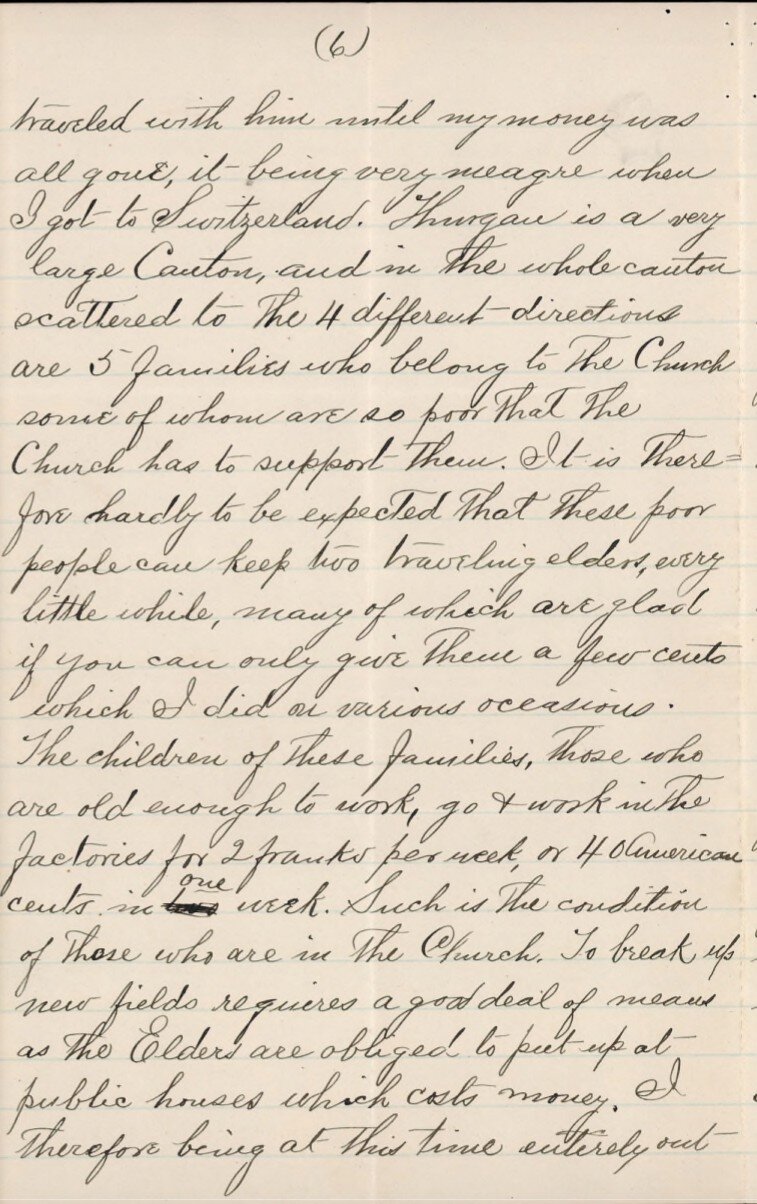 (6)
traveled with him until my money was
all gone, it being very meagre when
I got to Switzerland. Thurgau is a very
large Canton, and in the whole canton
scattered to the 4 different directions
are 5 families who belong to the Church
some of whom are so poor that the
Church has to support them. It is there=
fore hardly to be expected that these poor
people can keep two traveling elders, every
little while, many of which are glad
if you can only give them a few cents
which I did on various occasions.
The children of these families, those who
are old enough to work, go & work in the
factories for 2 franks per week, or 40 American
cents in one week. Such is the condition
of those who are in the Church. To break up
new fields requires a good deal of means
as the Elders are obliged to put up at
public houses which costs money. I
therefore being at this time entirely out